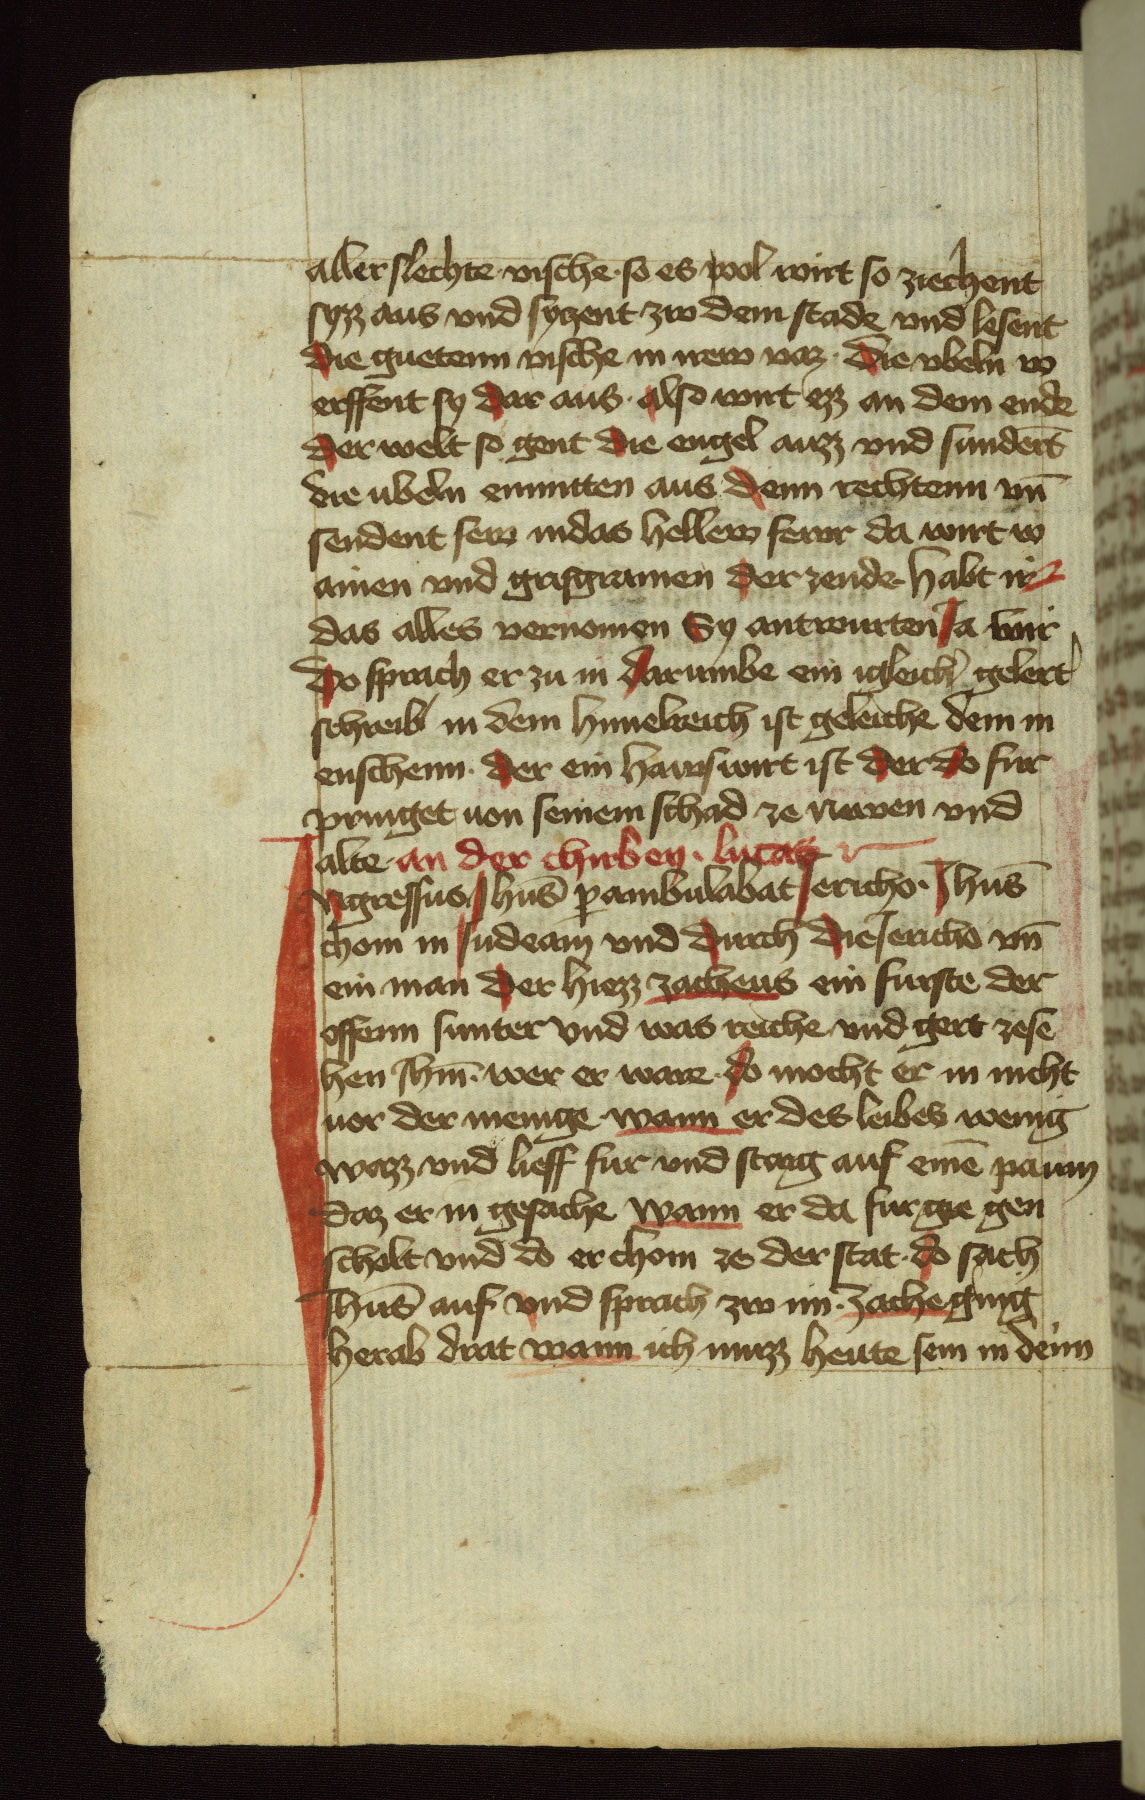 aller slechte vische · so es wol wirt so ziechent
syzz aus vnd syczent zw dem stade vnd lesent
die guetenn vische in irew vaz · die vbeln w
erffent sy dar aus · also wirt ezz an dem ende
der welt so gent die engel auzz vnd sundert
die ubeln enmitten aus denn rechtenn vn̄
sendent sew indas hellew fewr da wirt w
ainen vnd grisgramen der zende · habt ir
das alles vernomen Sy antwurten Ja wir
Do sprach er zu in darumbe ein igleich' gelert'
schreib' in dem himelreich ist geleiche dem m
enschenn · der ein hawswirt ist der do fur
pringet von seinem schad ze newen vnd
alte · an der chirbey · lucas
Ingressus Jhus̄ p̱ambulabat Jericho · Jhus̄
chom in Judeam vnd durch die Jericho vn̄
ein man der hiezz zacheus ein furste der
offenn sunter vnd was reiche vnd gert zese
hen Jhm̄ · wer er ware · do mocht er in nicht
uor der menige · wann er des leibes wenig
wazz vnd lieff fur vnd staig auf einē paum
daz er in gesache wann er da fur gie gen
scholt vnd do er chom ze der stat · do sach
Jhus̄ auf vnd sprach zw im · zache ging
herab drat wann ich muzz heute sein in deinn